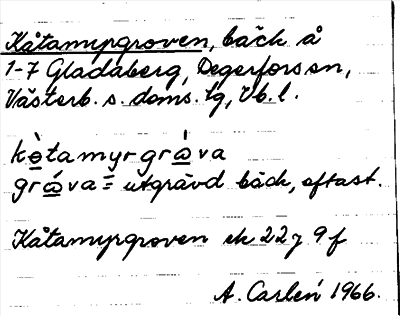 Kåtamyrgroven, bäck å
1-7 Gladaberg, Degerfors sn,
Västerb. s. doms. tg, Vb. l.
kòtamyrgráva
gráva = utgrävd bäck, oftast.
Kåtamyrgroven ek 22 J 9 f
A. Carlén 1966.